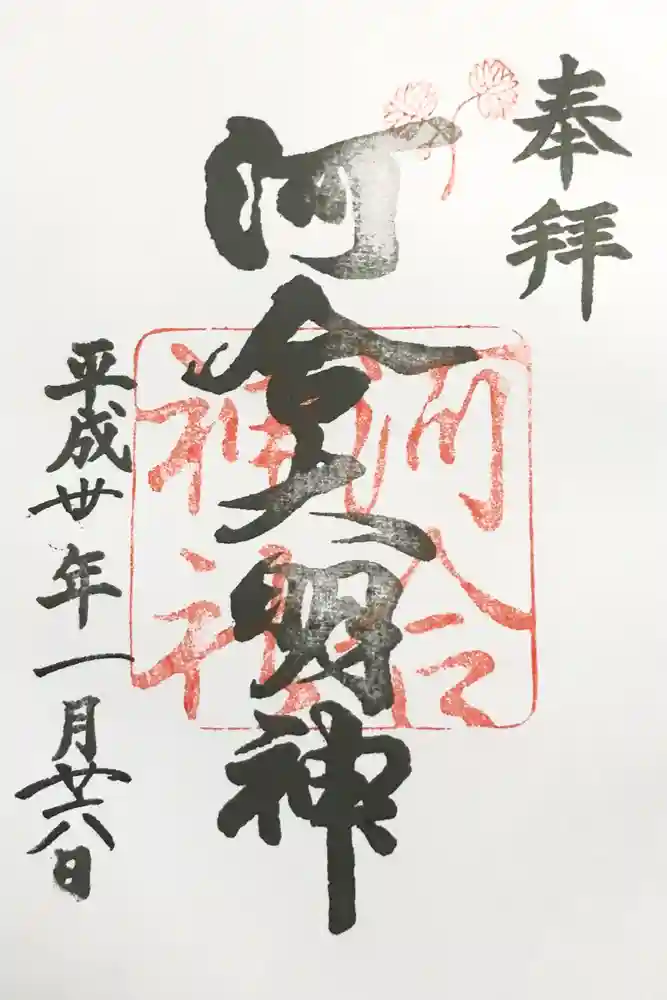 奉拝
河合大明神
河合神社
平成丗年一月廿八日